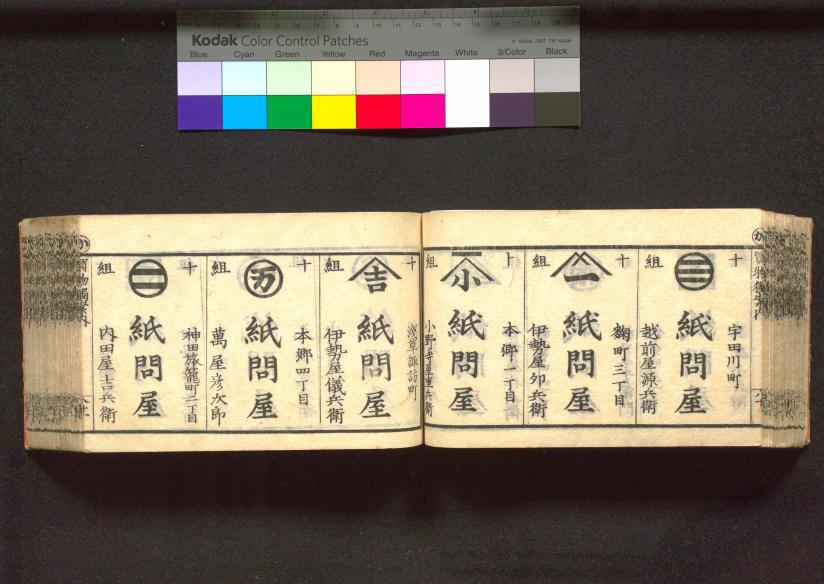 Kodak Color Control Patches
© Kodak, 2007 TM: Kodak
Blue Cyan Green Yellow Red Magenta White 3/Color Black
か
十 組
紙問屋
宇田川町
越前屋源兵衛
十 組
一
紙問屋
麹町三丁目
伊勢屋卯兵衛
十 組
小
紙問屋
本郷一丁目
小野寺屋重兵衛
十 組
吉
紙問屋
浅草諏訪町
伊勢屋儀兵衛
十 組
万
紙問屋
本郷四丁目
萬屋彦次郎
十 組
二
紙問屋
神田旅籠町二丁目
内田屋吉兵衛
か
買物獨案内